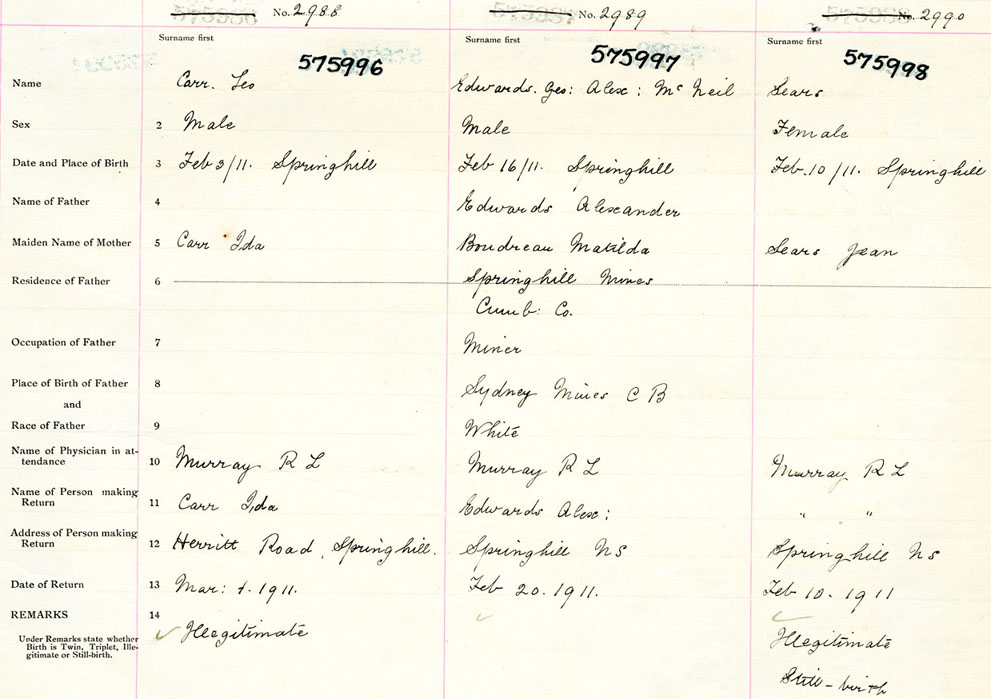 No. 2988 No. 2989 No. 2990
Surname first Surname first Surname first
575996 575997 575998
Name Carr. Leo Edwards. Geo: Alex: McNeil Sears
Sex 2 Male Male Female
Date and Place of Birth 3 Feb 3/11. Springhill Feb 16/11. Springhill Feb. 10/11. Springhill
Name of Father 4 Edwards Alexander
Maiden Name of Mother 5 Carr Ida Boudreau Matilda Sears Jean
Residence of Father 6 Springhill Mines
Cumb: Co.
Occupation of Father 7 Miner
Place of Birth of Father 8 Sydney Mines C B
and
Race of Father 9 White
Name of Physician in at-
tendance 10 Murray R L Murray R L Murray R L
Name of Person making
Return 11 Carr Ida Edwards Alex: " "
Address of Person making
Return 12 Herritt Road, Springhill. Springhill NS Springhill NS
Date of Return 13 Mar: 1. 1911. Feb 20. 1911. Feb 10. 1911
REMARKS 14
Under Remarks state whether
Birth is Twin, Triplet, Ille-
gitimate or Still-birth.
Illegitimate Illegitimate
Still-birth